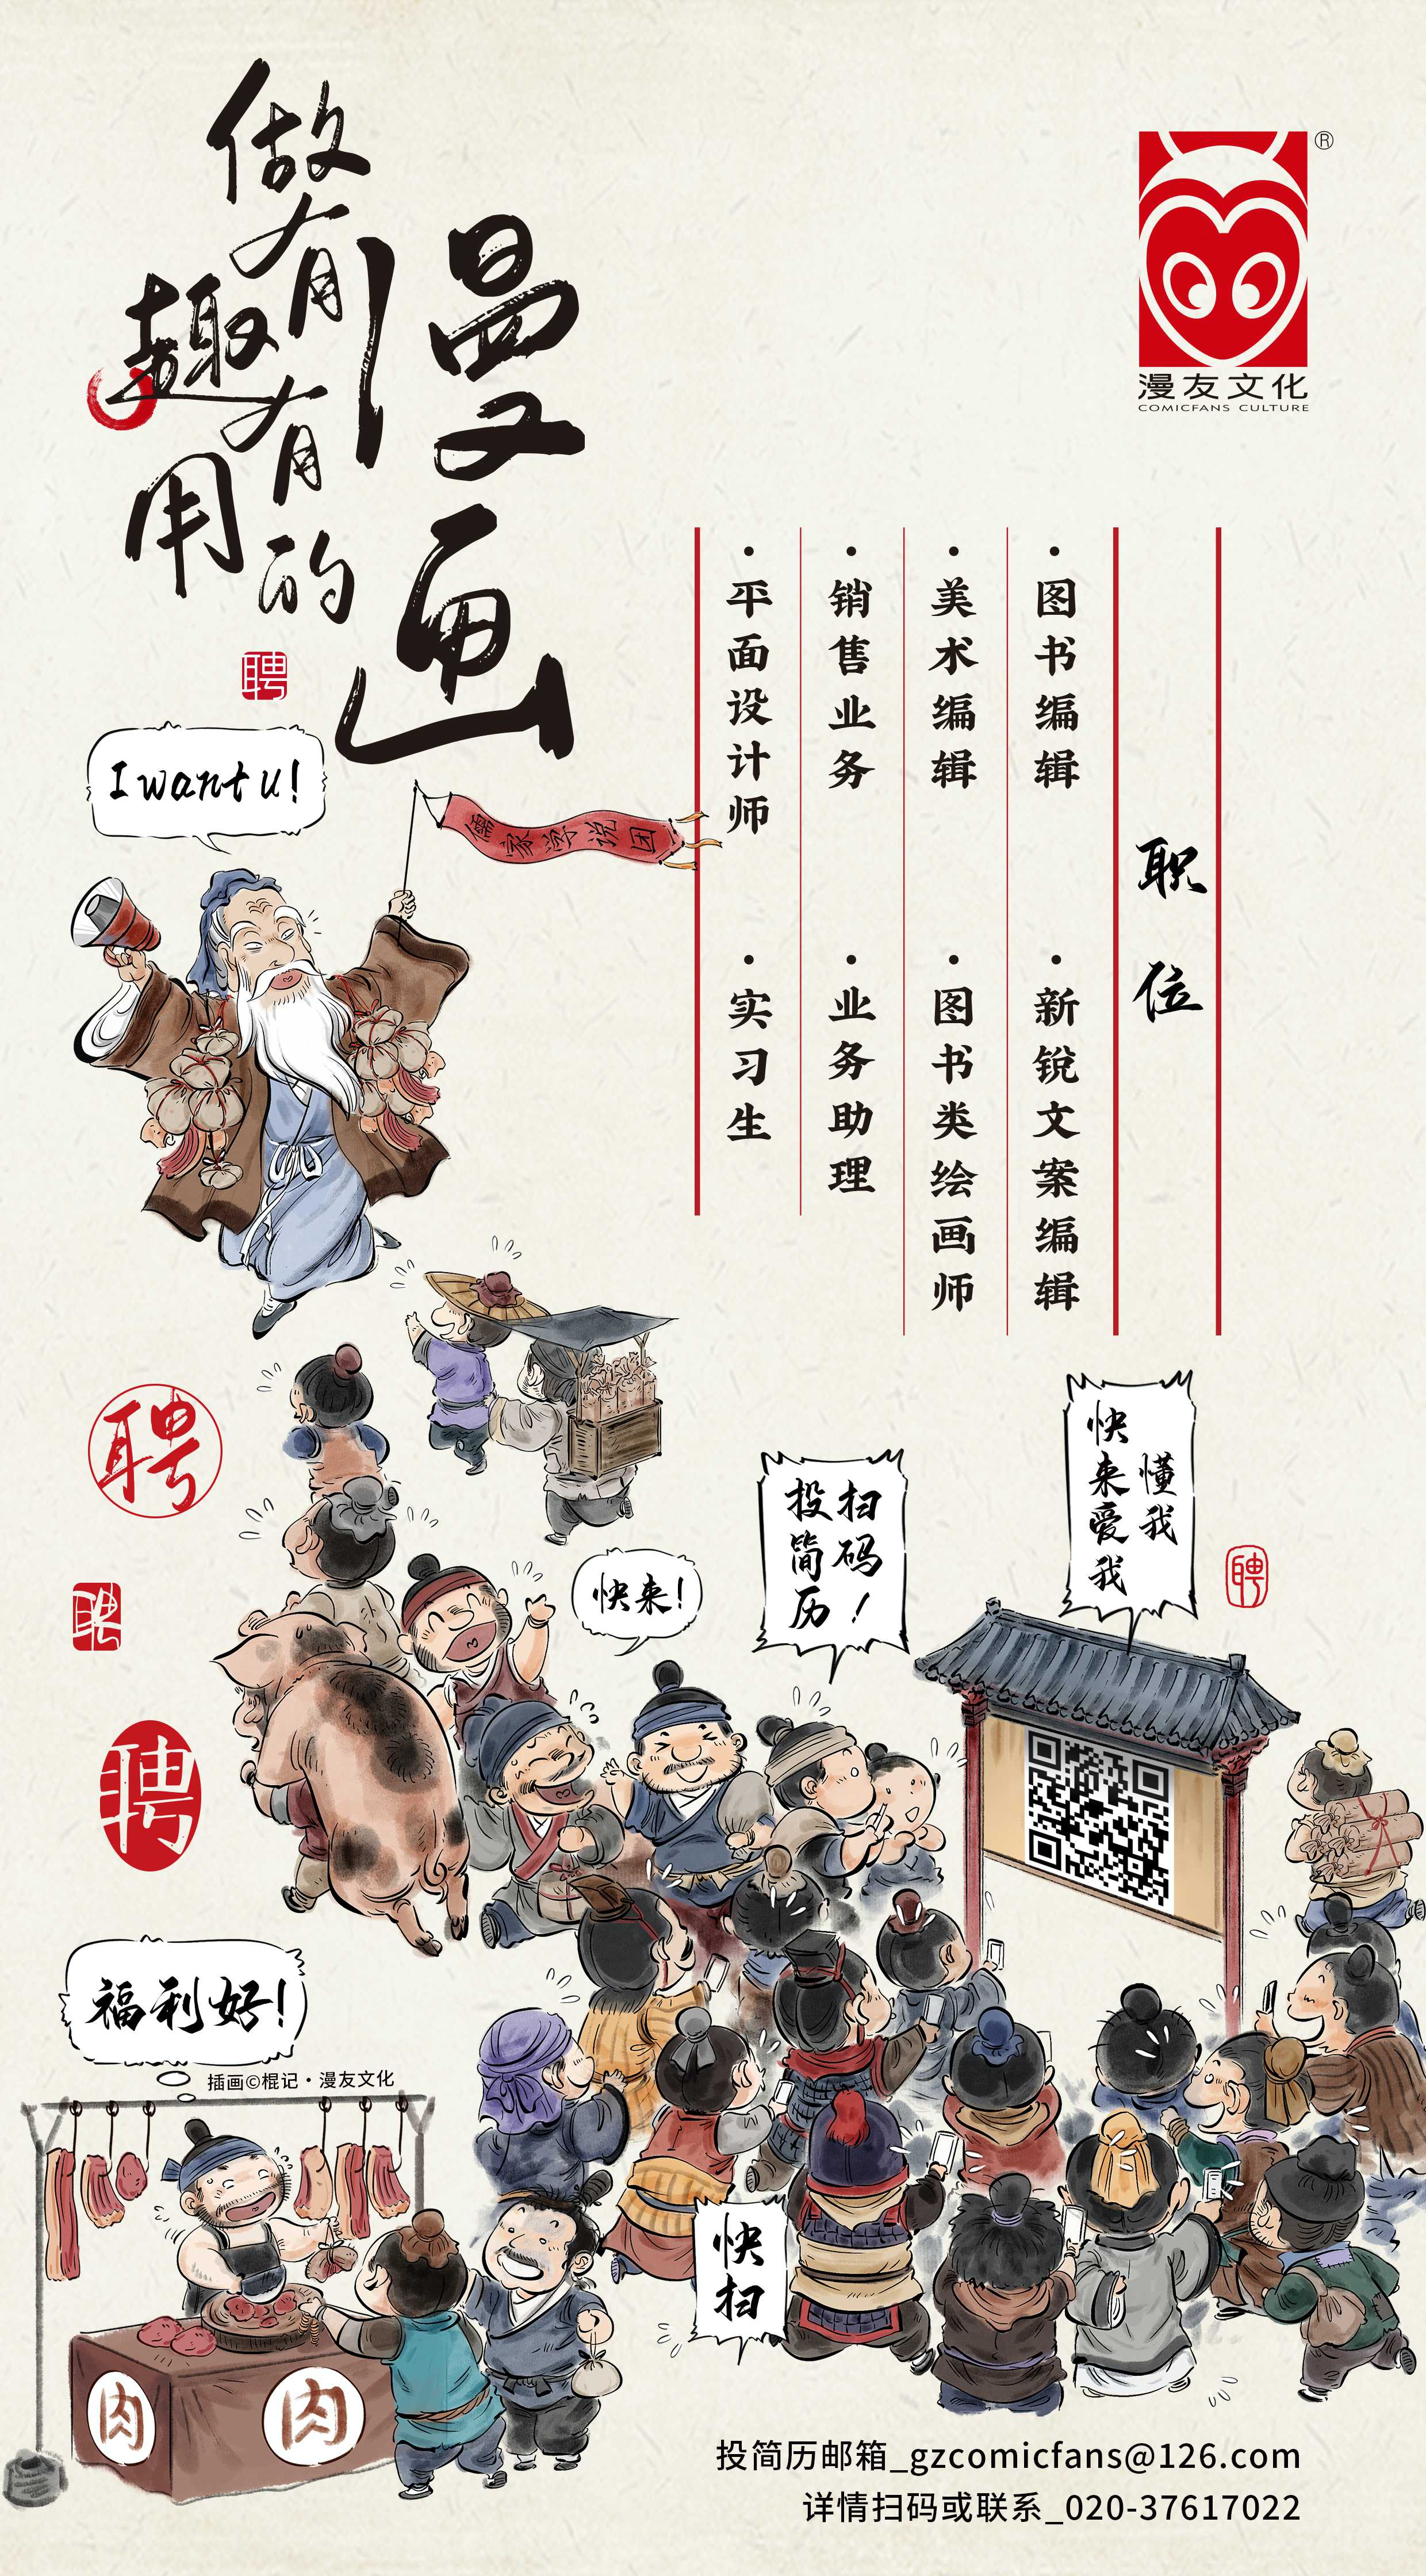 做有趣有用的
漫画
聘
®
漫友文化
COMICFANS CULTURE
职位
·图书编辑
·新锐文案编辑
·美术编辑
·图书类绘画师
·销售业务
·业务助理
·平面设计师
·实习生
I want u!
儒家学说团
聘
聘
聘
快来!
扫码!
投简历
懂我
快来爱我
聘
福利好!
插画©棍记·漫友文化
肉
肉
快扫
投简历邮箱_gzcomicfans@126.com
详情扫码或联系_020-37617022